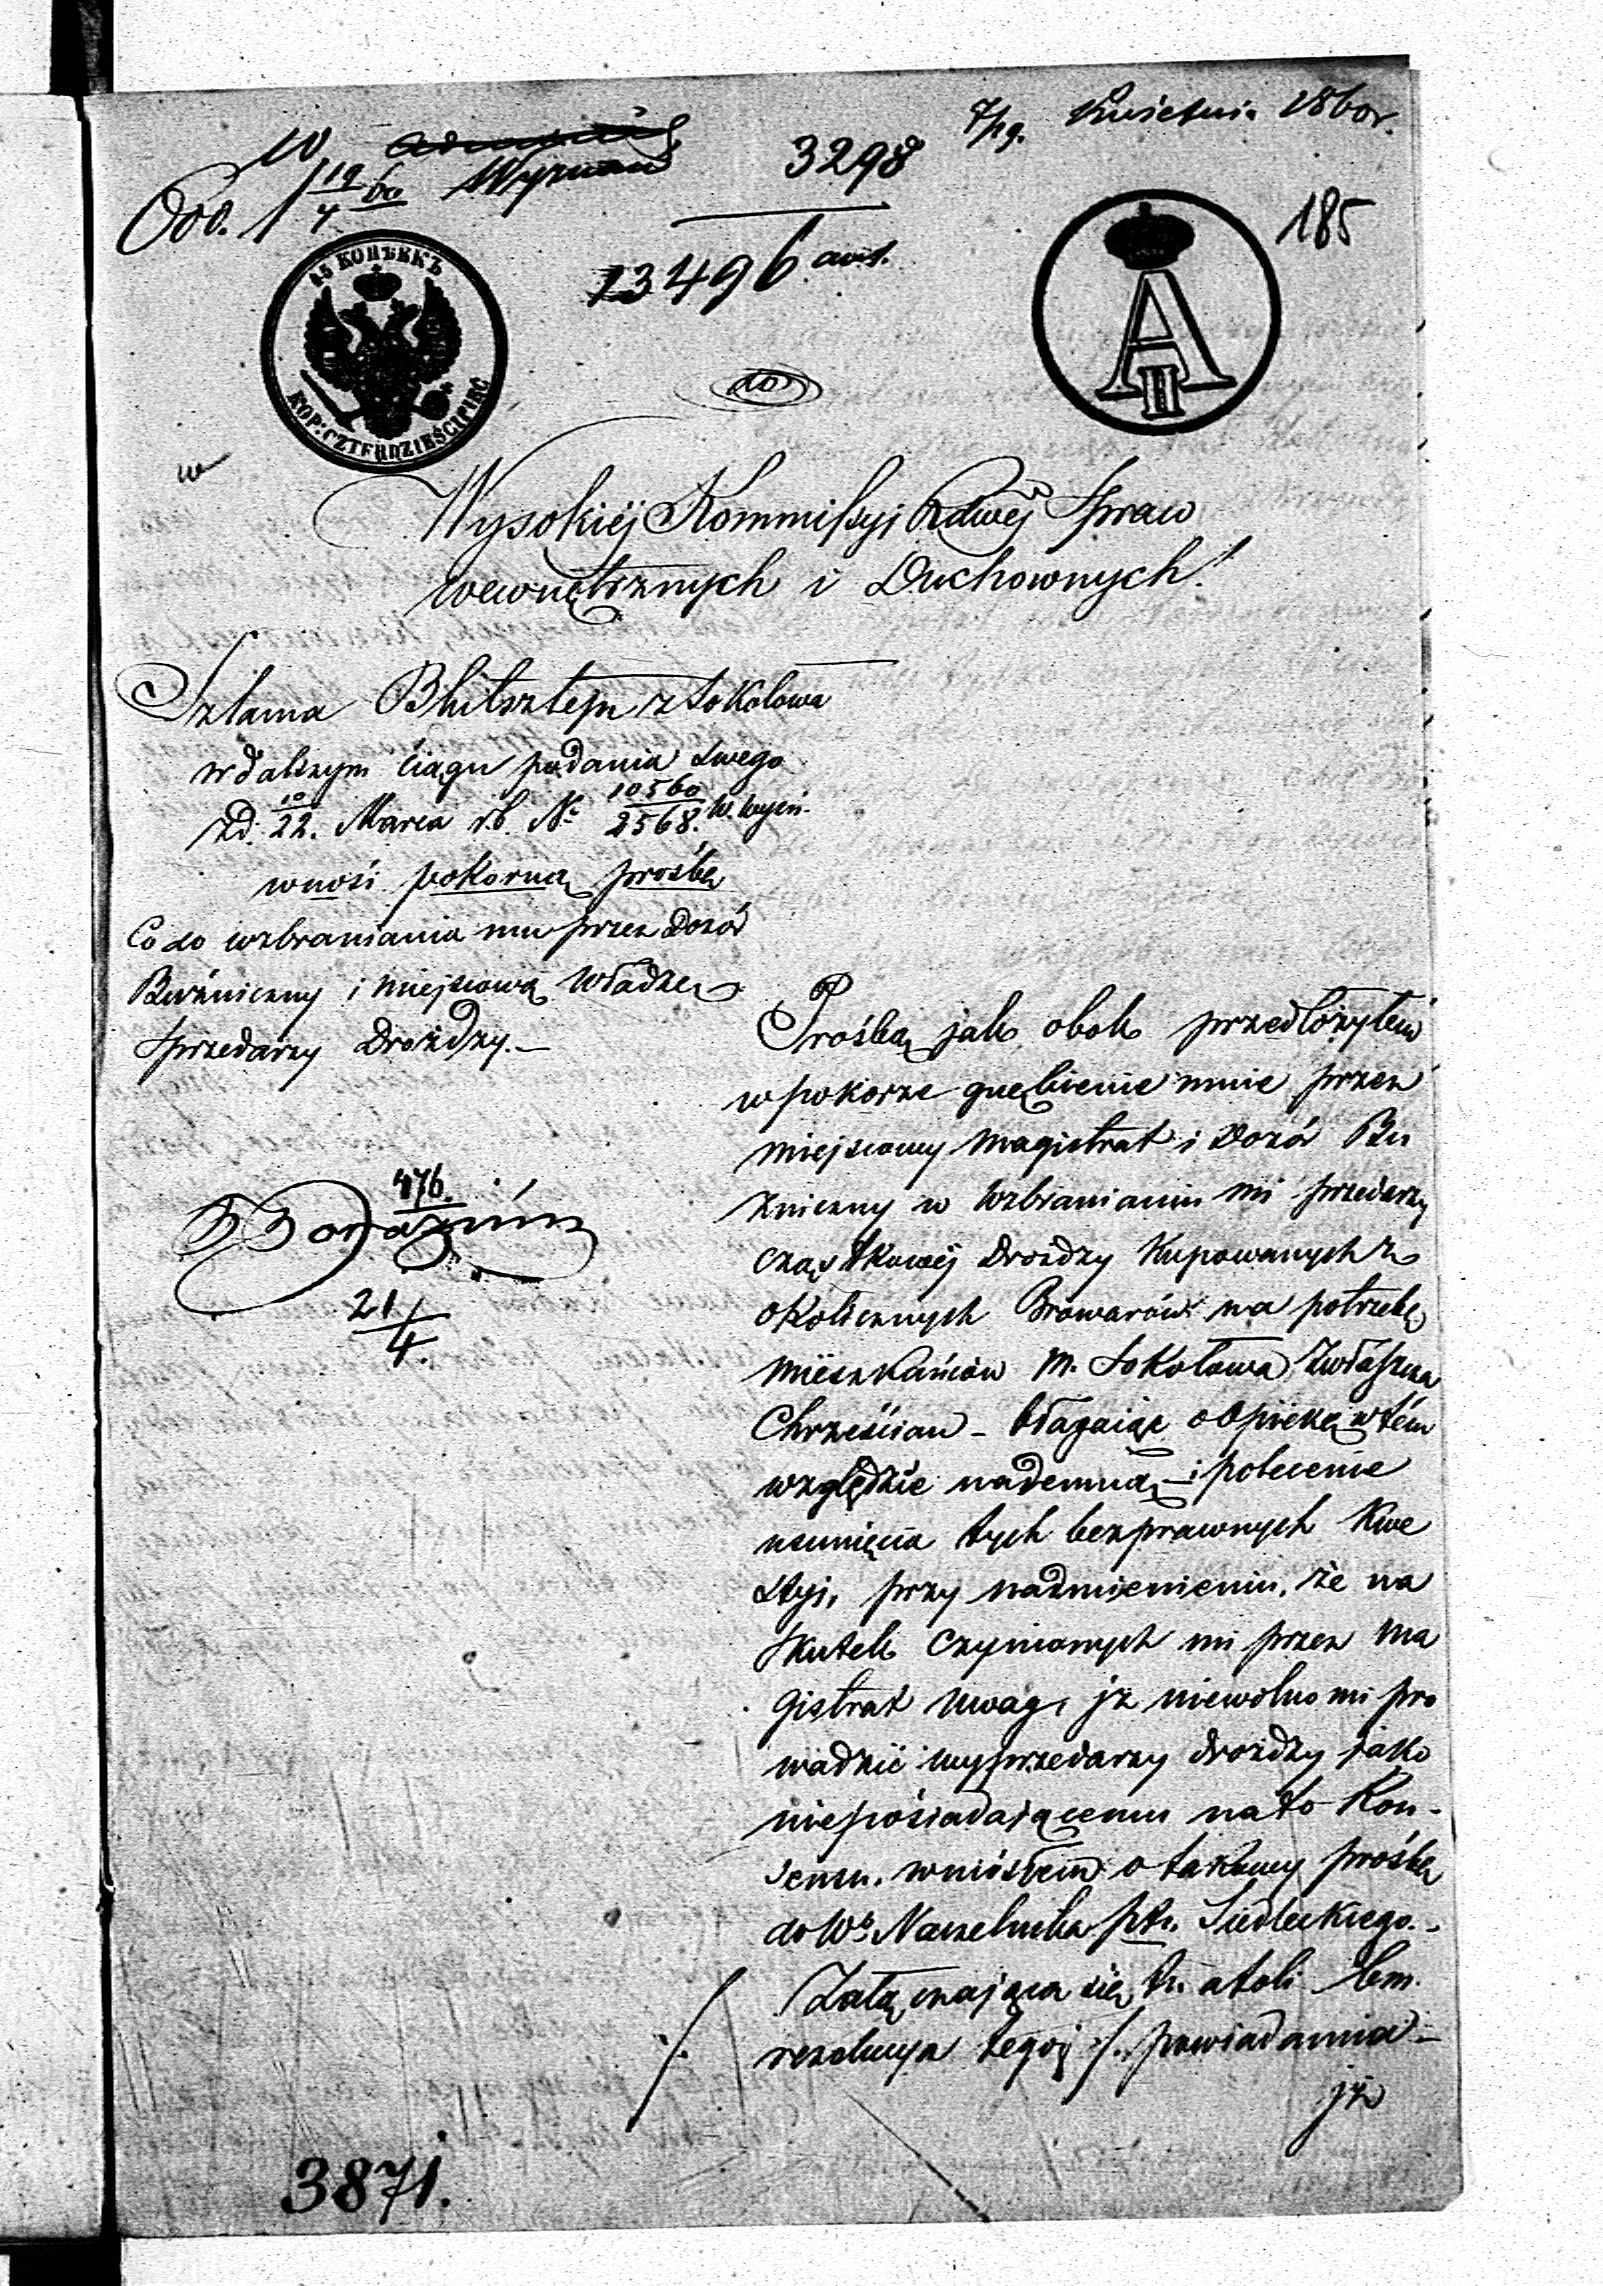 7/19. Kwietnia 1860 r.
W
Wyznań
3298
Odd. 19/4 60
13496 aut.
185
15 КОПѢЕКЪ
KOP: CZTERDZIEŚCI PIĘĆ
A II
do
Wysokiéj Kommissyi Rdwéj Spraw
wewnętrznych i Duchownych!
Szlama Blutsztejn z Sokołowa
w dalszym ciągu podania swego
z d. 10/22. Marca r.b. No 10560/2568. W. wyzń.
wnosi pokorną prośbę
Co do wzbraniania mu przez Dozór
Bużniczny i miejscową Władzę
Sprzedarzy Drożdży. —
476.
21/4.
Prośbą jak obok przedłożyłem
w pokorze gnębienie mnie przez
miejscowy Magistrat i Dozór Bu
żniczny w wzbranianiu mi przedarzy
cząstkowéj Drożdży Kupowanych z
okolicznych Browarów na potrzebę
mieszkańców M. Sokołowa Zwłaszcza
Chrześcian – błagając o Opiekę w tém
względzie nademną – i polecenie
usunięcia tych bezprawnych Kwe
styi, przy nadmienieniu, że na
skutek czynionych mi przez Ma
gistrat uwag, iż niewolno mi pro
wadzić wysprzedarzy drożdży jako
nieposiadającemu na to Kon-
sensu. wniosłem o takowy prośbę
do Wo Naczelnika ptu. Siedleckiego. -
Załączająca się tu atoli
rezolucya tegoż ./. powiadamia –
./.
iż
3871.